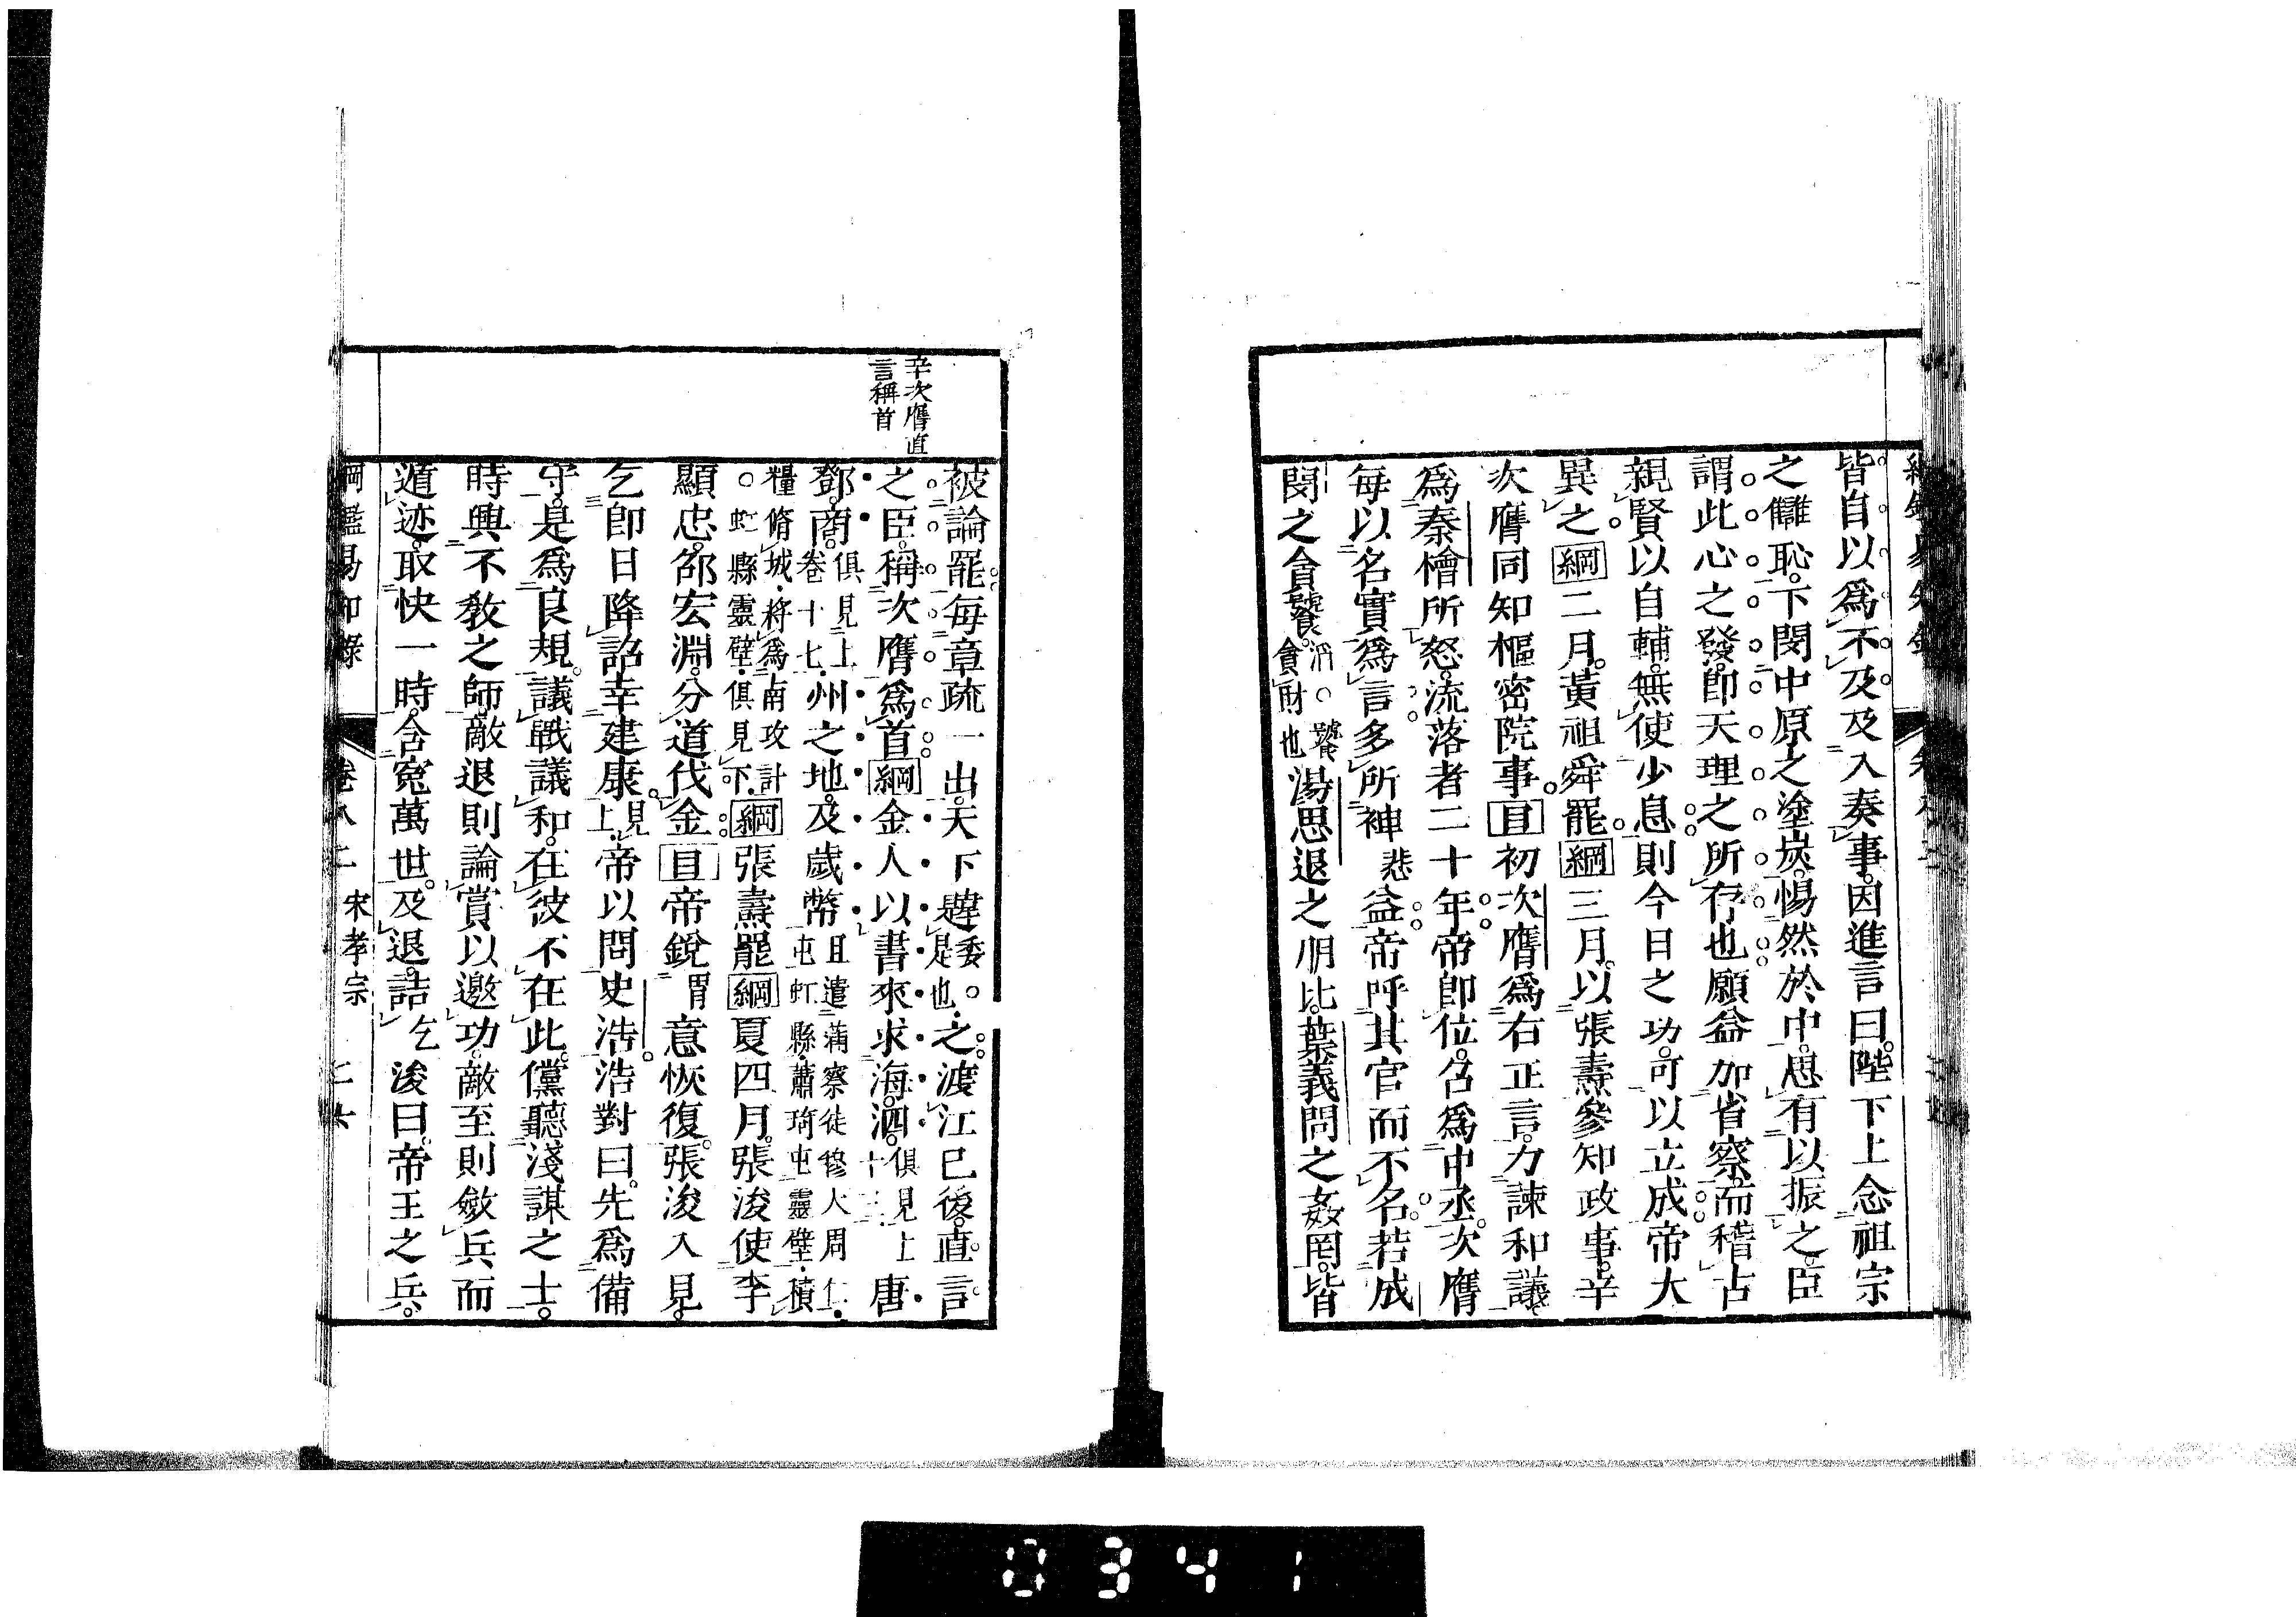 皆自以爲不及及入奏事因進言曰陛下上念祖宗
之讎恥下閔中原之塗炭惕然於中思有以振之臣
謂此心之發卽天理之所存也願益加省察而稽古
親賢以自輔無使少息則今日之功可以立成帝大
異之綱二月黃祖舜罷綱三月以張燾參知政事辛
次膺同知樞密院事目初次膺爲右正言力諫和議
爲秦檜所怒流落者二十年帝卽位召爲中丞次膺
每以名實爲言多所裨益帝呼其官而不名若成
閔之貪饕貪財也湯思退之朋比葉義問之姦罔皆
辛次膺直
言稱首
被論罷每章疏一出天下韙委是也之渡江已後直言
之臣稱次膺爲首綱金人以書來求海泗俱見上唐
鄧商俱見上卷十七州之地及歲幣且遣蒲察徒穆大周仁屯虹縣蕭琦屯靈壁積
糧脩城將爲南攻計虹縣靈壁俱見下綱張燾罷綱夏四月張浚使李
顯忠邵宏淵分道伐金目帝銳意恢復張浚入見
乞卽日降詔幸建康見上帝以問史浩浩對曰先爲備
守是爲良規議戰議和在彼不在此儻聽淺謀之士
時興不敎之師敵退則論賞以邀功敵至則斂兵而
遁迹取快一時含冤萬世及退詰浚曰帝王之兵
綱鑑易知錄 卷八二 宋孝宗 二六
0341